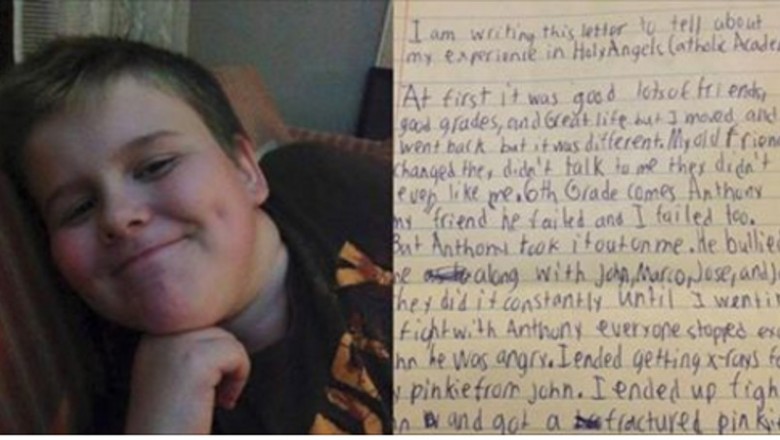 I am writing this letter to tell about
my experience in Holy Angels Catholic Acade
At first it was good lots of friends,
good grades, and Great life but I moved and
went back but it was different. My old frien
changed they didn't talk to me they didn't
even like me. 6th Grade comes Anthony
my friend he failed and I failed too.
But Anthony took it out on me. He bullie
me along with John, Marco, Jose, and J
they did it constantly Until I went in
fight with Anthony everyone stopped ex
he was angry. I ended getting x-rays f
pinkie from John. I ended up figh
and got a fractured pinky